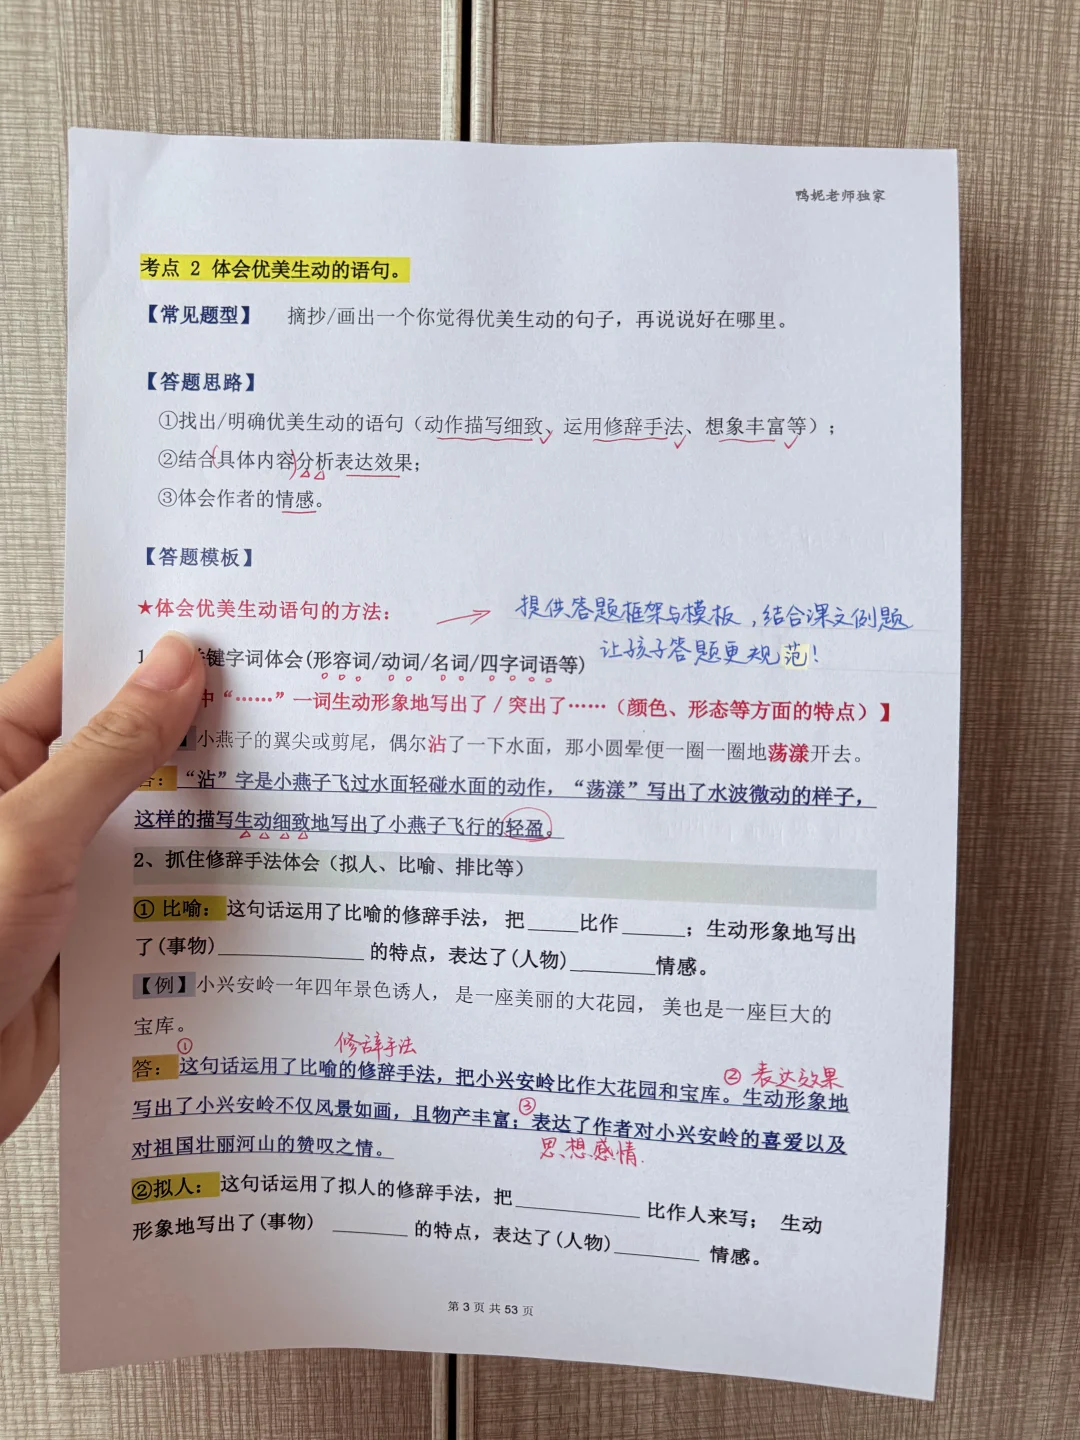 鸭妮老师独家
考点 2 体会优美生动的语句。
【常见题型】 摘抄/画出一个你觉得优美生动的句子，再说说好在哪里。
【答题思路】
①找出/明确优美生动的语句（动作描写细致、运用修辞手法、想象丰富等）；
②结合(具体内容)分析表达效果；
③体会作者的情感。
【答题模板】
★体会优美生动语句的方法：
提供答题框架与模板，结合课文例题
让孩子答题更规范！
1 键字词体会(形容词/动词/名词/四字词语等)
中“……”一词生动形象地写出了/突出了……（颜色、形态等方面的特点）】
】小燕子的翼尖或剪尾，偶尔沾了一下水面，那小圆晕便一圈一圈地荡漾开去。
答：“沾”字是小燕子飞过水面轻碰水面的动作，“荡漾”写出了水波微动的样子，
这样的描写生动细致地写出了小燕子飞行的轻盈。
2、抓住修辞手法体会（拟人、比喻、排比等）
① 比喻：这句话运用了比喻的修辞手法，把_____比作______；生动形象地写出
了(事物)______________的特点，表达了(人物)________情感。
【例】小兴安岭一年四年景色诱人，是一座美丽的大花园，美也是一座巨大的
宝库。
① 修辞手法
② 表达效果
答：这句话运用了比喻的修辞手法，把小兴安岭比作大花园和宝库。生动形象地
写出了小兴安岭不仅风景如画，且物产丰富；③表达了作者对小兴安岭的喜爱以及
对祖国壮丽河山的赞叹之情。
思想感情.
②拟人：这句话运用了拟人的修辞手法，把____________比作人来写；生动
形象地写出了(事物) _______的特点，表达了(人物)________ 情感。
第 3 页 共 53 页